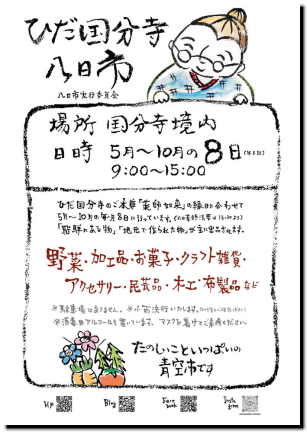 ひだ国分寺
八日市
八日市実行委員会
場所 国分寺境内
日時 5月～10月の8日(年6回)
9:00～15:00
ひだ国分寺のご本尊「薬師如来」の縁日に合わせて
5月～10月の毎月8日に行っています。
「新鮮である物」「地元で作られた物」が主に出品されます。
野菜・加工品・お菓子・クラフト雑貨・
アクセサリー・民芸品・木工・布製品など
※駐車場は有りません。※小雨決行いたします。
※消毒用アルコールを置いています。マスクを着けてご来場ください。
たのしいこといっぱいの
青空市です
HP
Blog
Face book
Insta gram